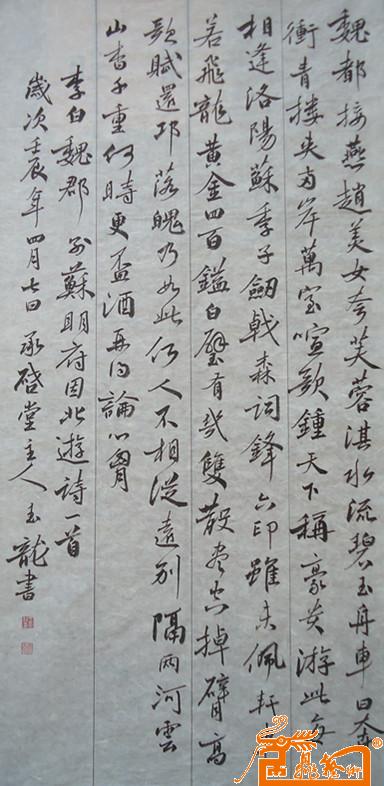 魏都接燕趙美女夸芙蓉淇水流碧玉舟車日奔
衝青楼夹两岸萬室喧歌鍾天下稱豪贵游此每
相逢洛陽蘇季子劔戟森词鋒六印雖未佩軒車
若飛龍黄金四百鎰白璧有幾雙散盡空掉臂高
歌賦還邛落魄乃如此何人不相從遠別隔两河雲
山杳千重何時更盃酒再得論心胷
李白魏郡别蘇明府因北遊詩一首
歲次壬辰年四月七日承啓堂主人玉龍書